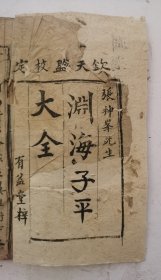 欽天監校定
張神峯先生
淵海子平
大全
有益堂梓